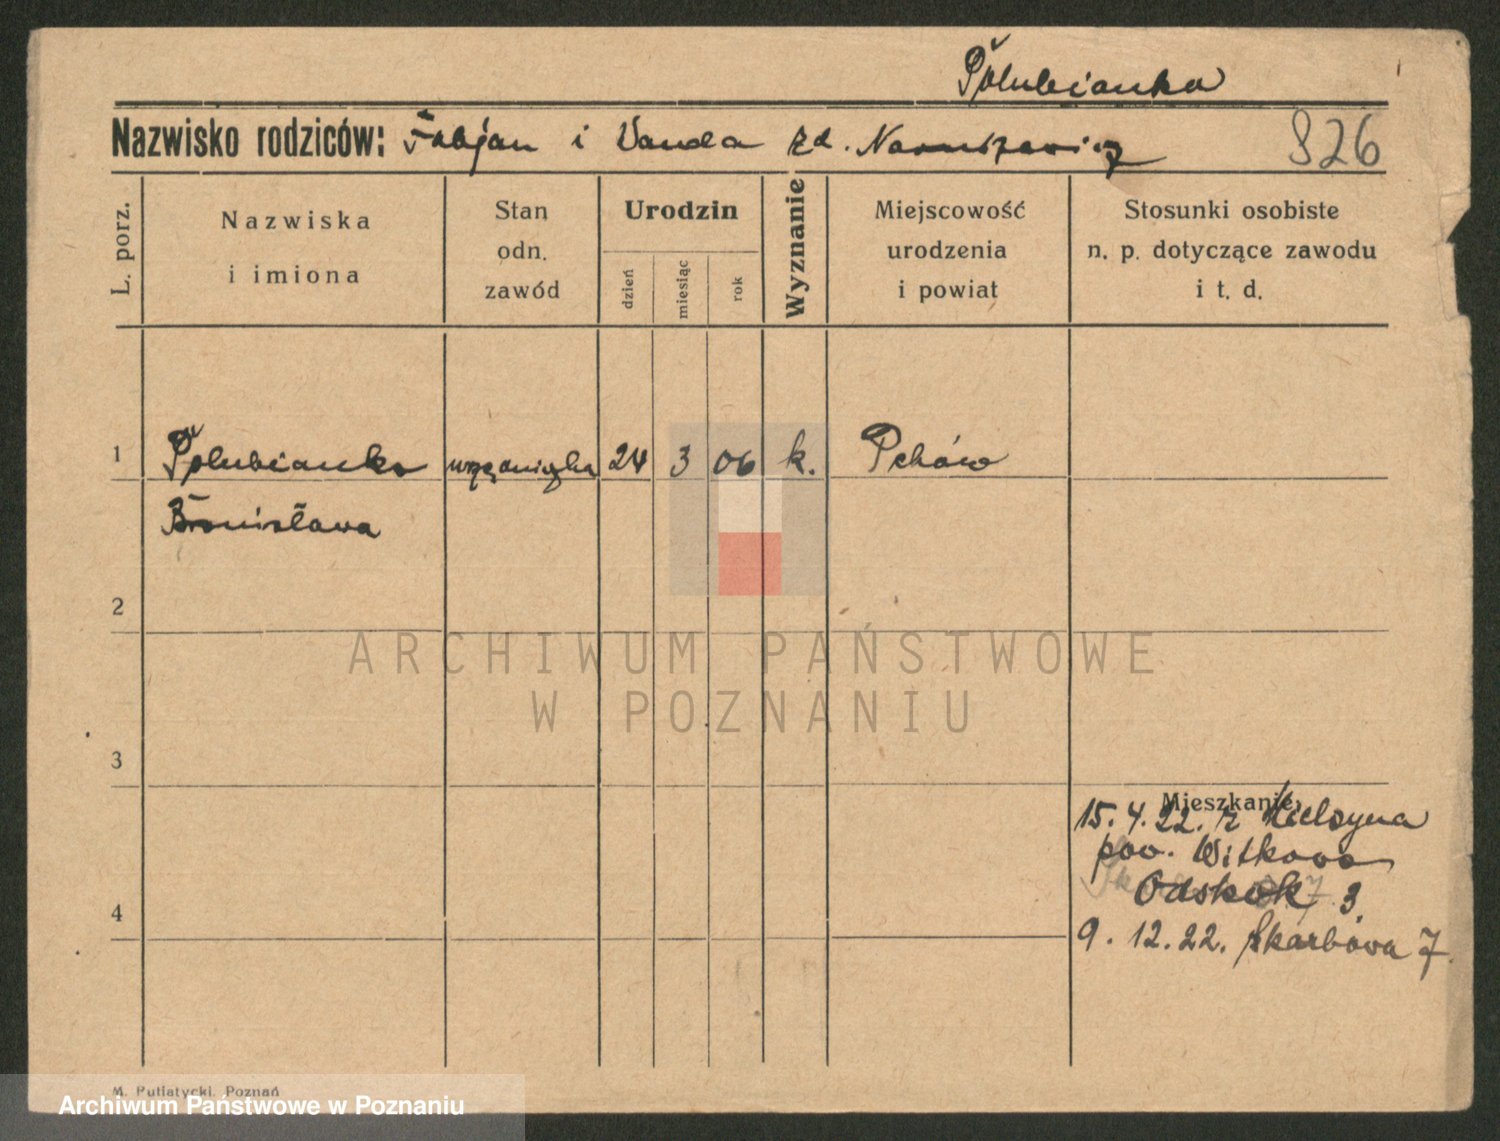 Połubianka
Nazwisko rodziców: Fabjan i Wanda zd. Naruszewicz
826
L. porz.
Nazwiska
i imiona
Stan
odn.
zawód
Urodzin
dzień
miesiąc
rok
Wyznanie
Miejscowość
urodzenia
i powiat
Stosunki osobiste
n. p. dotyczące zawodu
i t. d.
1 Połubianka urzędniczka 24 3 06 k.
Bronisława
2
ARCHIWUM PAŃSTWOWE
W POZNANIU
3
Mieszkanie
15. 4. 22. z Kielsyna
pow. Witkowo
Odskok 3
4
9. 12. 22. Skarbowa 7.
M. Putiatycki, Poznań
Archiwum Państwowe w Poznaniu